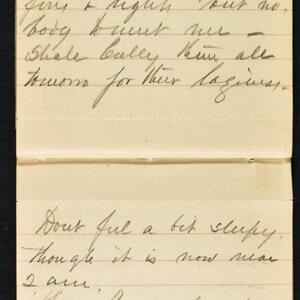 & nights but no-
body to meet me –
Shale bully them all
tomorro for their laginess.
Dont feel a bit sleepy.
though it is now near
2 am.